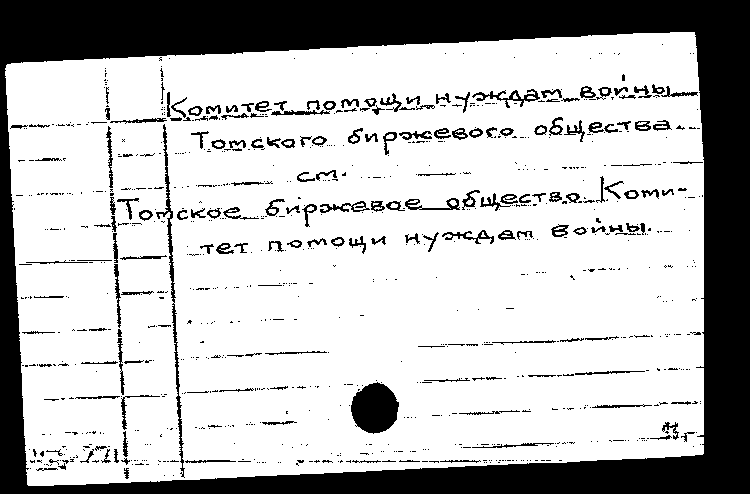 Комитет помощи нуждам войны
Томского биржевого общества.
см.
Томское биржевое общество. Коми-
тет помощи нуждам войны.